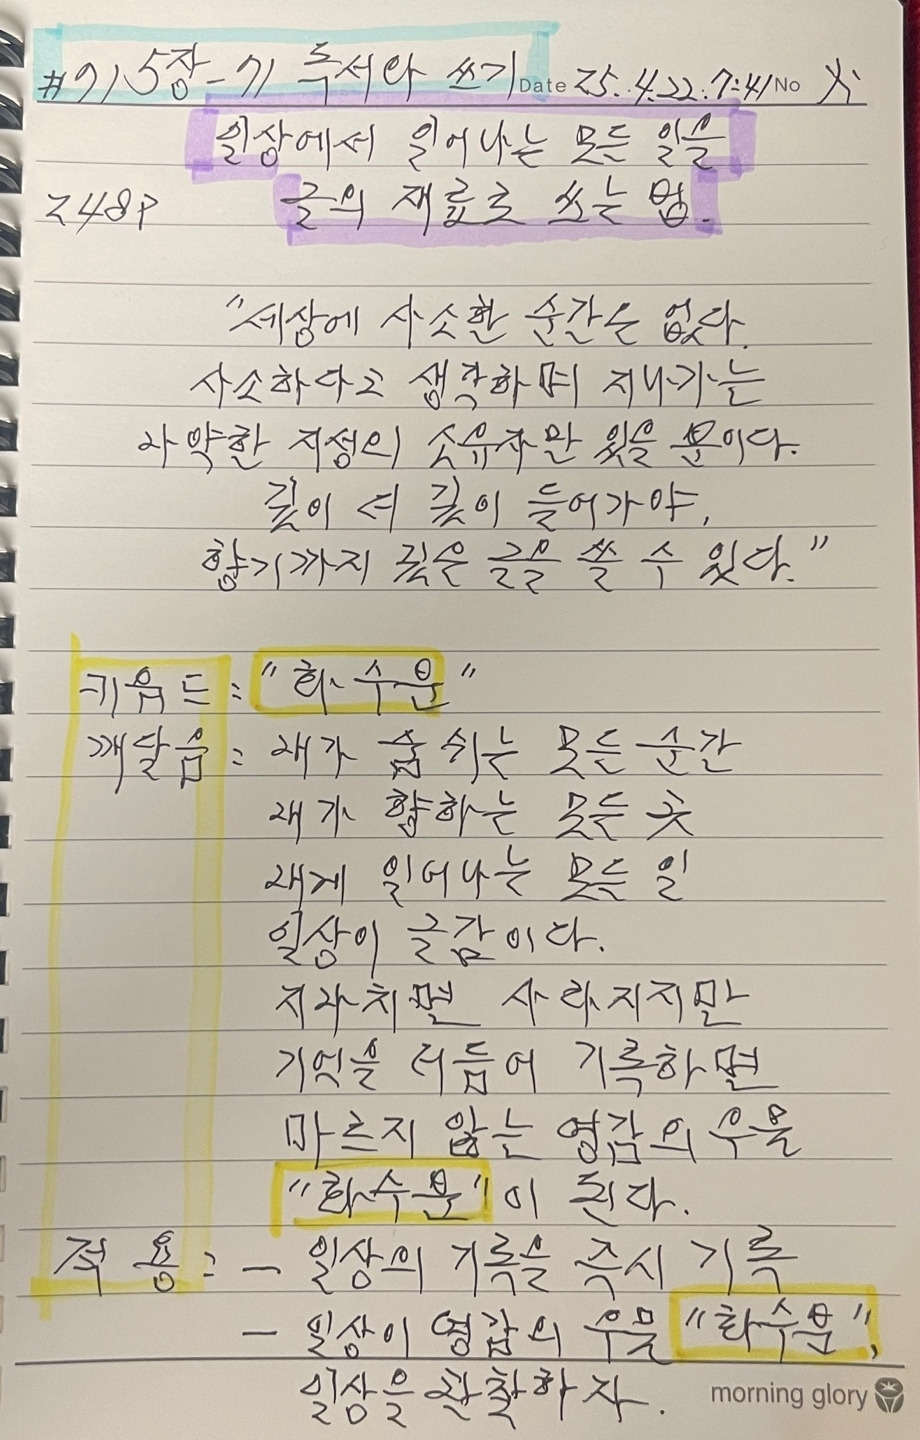 #71 5장-71 독서와 쓰기 Date 25.4.22.7:41 No 화
일상에서 일어나는 모든 일을
248P 글의 재료로 쓰는 법.
"세상에 사소한 순간은 없다.
사소하다고 생각하며 지나가는
나약한 지성의 소유자만 있을 뿐이다.
깊이 더 깊이 들어가야,
향기까지 깊은 글을 쓸 수 있다."
키워드 : "화수분"
깨달음 : 내가 숨쉬는 모든 순간
내가 향하는 모든 곳
내게 일어나는 모든 일
일상이 글감이다.
지나치면 사라지지만
기억을 더듬어 기록하면
마르지 않는 영감의 우물
"화수분"이 된다.
적용 : - 일상의 기록을 즉시 기록
- 일상이 영감의 우물 "화수분",
일상을 관찰하자.
morning glory